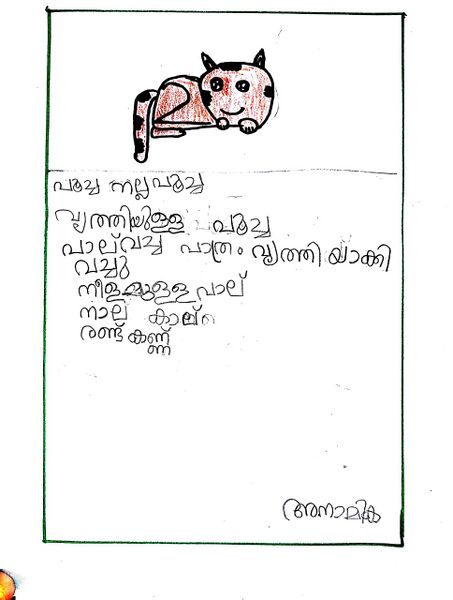 പൂച്ച നല്ല പൂച്ച
വൃത്തിയുള്ള പൂച്ച
പാല് വച്ച പാത്രം വൃത്തി യാക്കി
വച്ചു
നീളമുള്ള വാല്
നാല് കാല്
രണ്ട് കണ്ണ്
അനാമിക